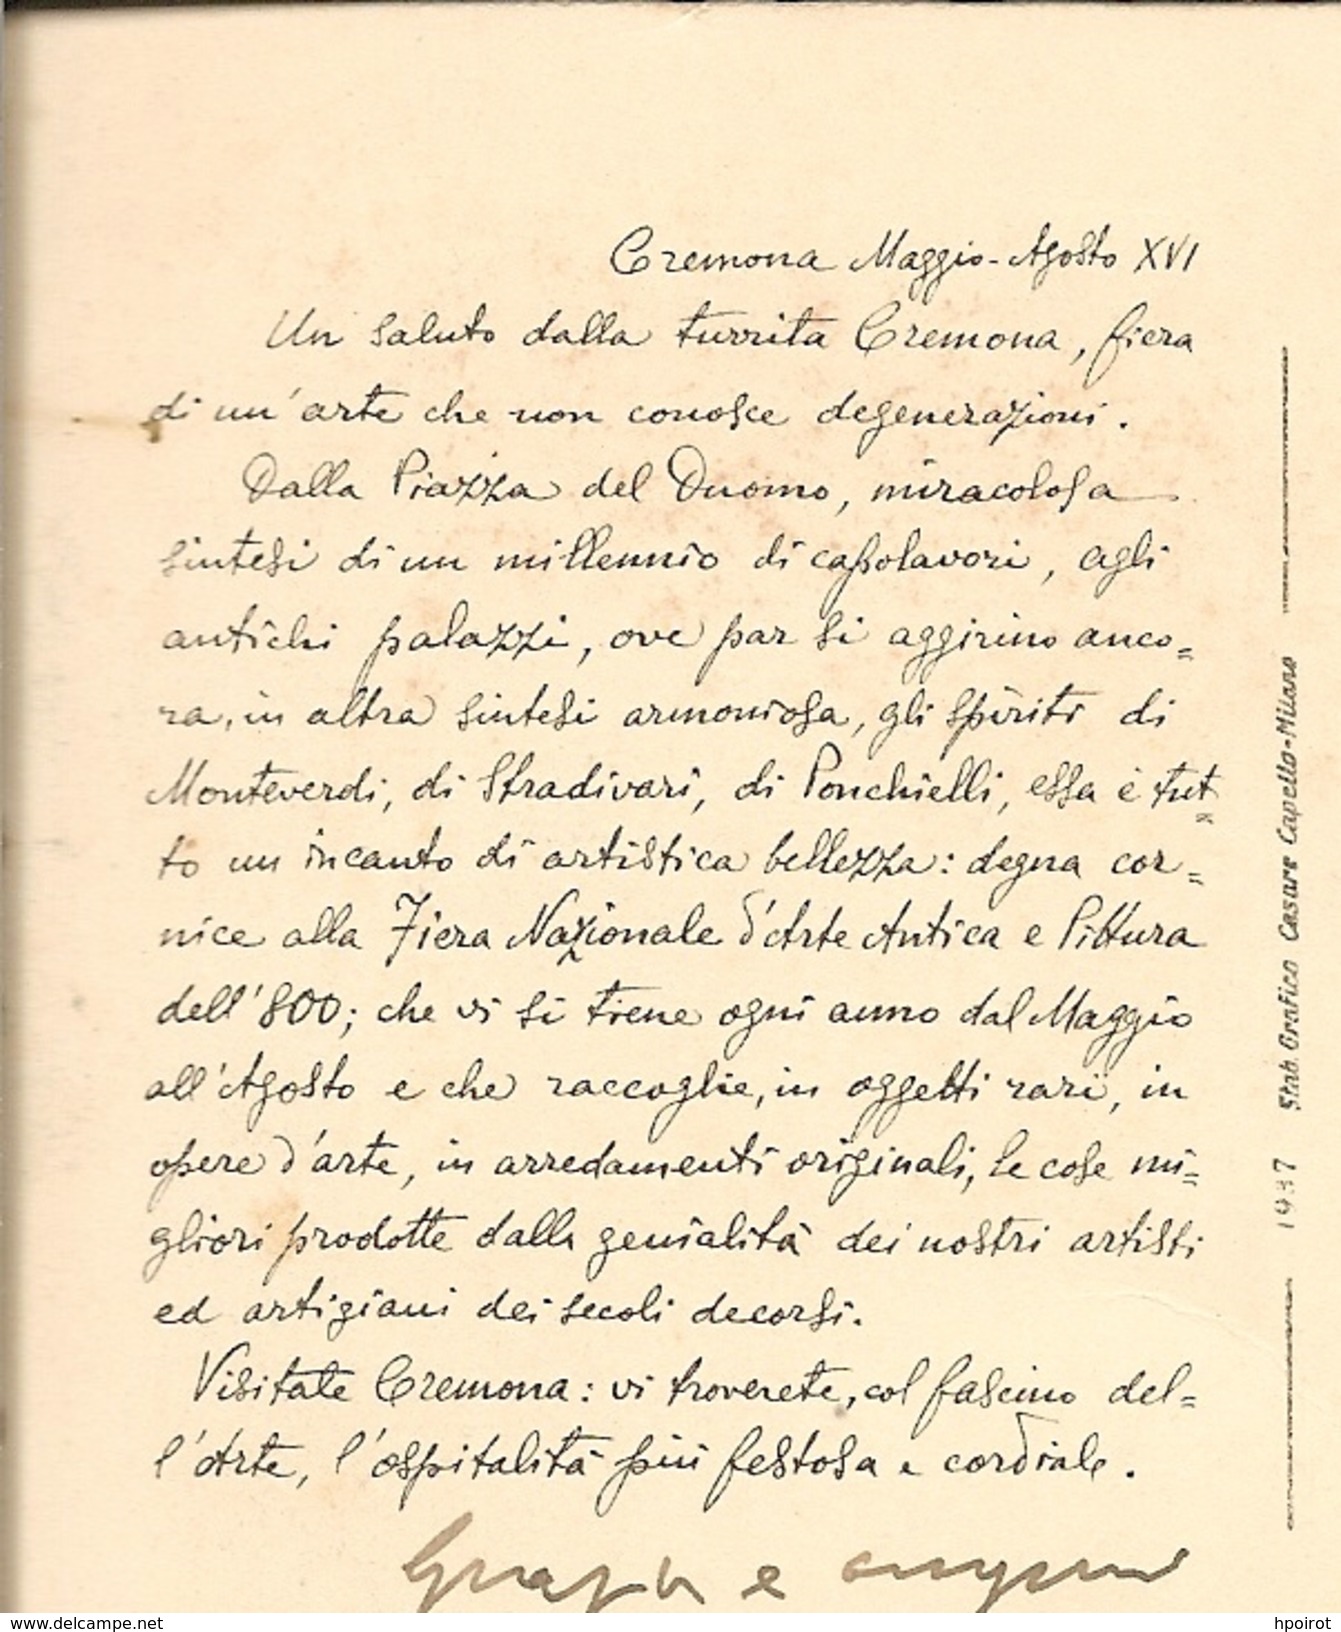 Cremona Maggio-Agosto XVI
Un saluto dalla turrita Cremona, fiera
di un'arte che non conosce degenerazioni.
Dalla Piazza del Duomo, miracolosa
sintesi di un millennio di capolavori, agli
antichi palazzi, ove par si aggirino anco=
ra, in altra sintesi armoniosa, gli spiriti di
Monteverdi, di Stradivari, di Ponchielli, essa è tut=
to un incanto di artistica bellezza: degna cor=
nice alla Fiera Nazionale d'Arte Antica e Pittura
dell'800; che vi si tiene ogni anno dal Maggio
all'Agosto e che raccoglie, in oggetti rari, in
opere d'arte, in arredamenti originali, le cose mi=
gliori prodotte dalla genialità dei nostri artisti
ed artigiani dei secoli decorsi.
Visitate Cremona: vi troverete, col fascino del=
l'Arte, l'ospitalità più festosa e cordiale.
e
1937 Stab. Grafico Cesare Capello-Milano
www.delcampe.net
hpoirot